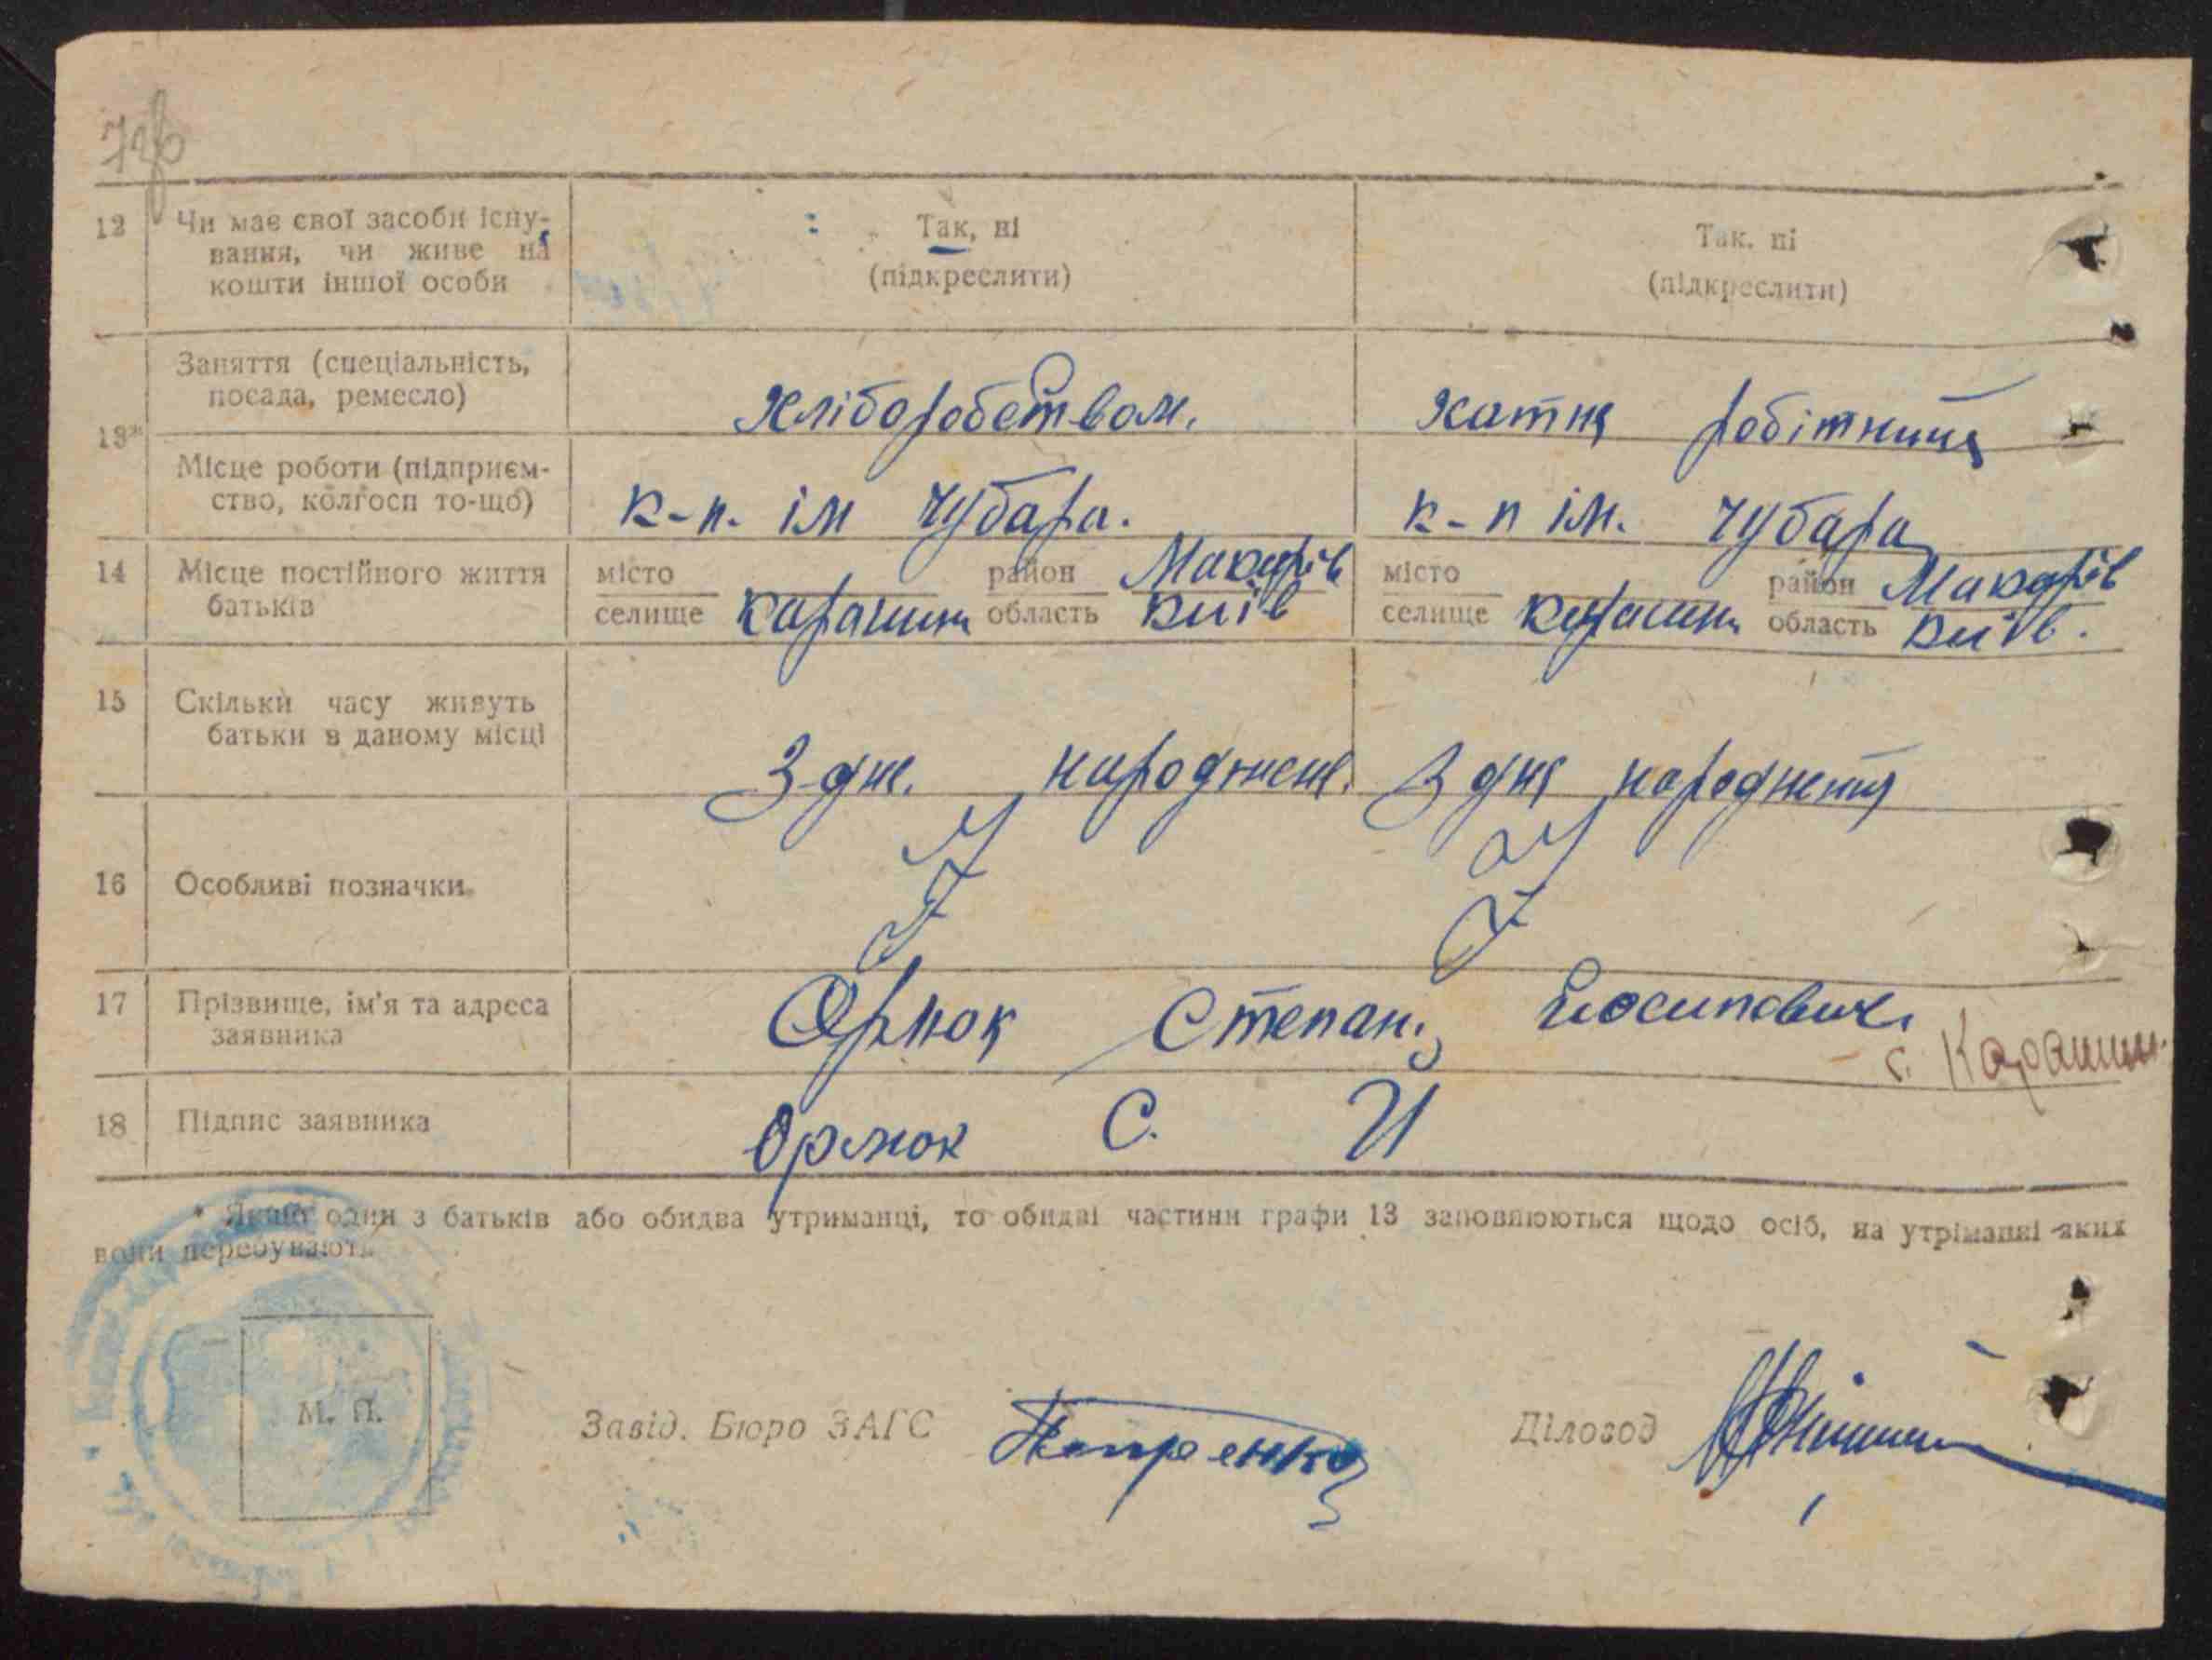 12 Чи має свої засоби існу- Так, ні Так. ні
вання, чи живе на (підкреслити) (підкреслити)
кошти іншої особи
Заняття (спеціальність, хліборобством. хатня робітниця
посада, ремесло)
13*
Місце роботи (підприєм- к-п. ім чубаря. к-п ім. чубаря
ство, колгосп то-що)
14 Місце постійного життя місто район Макарів місто район Макарів
батьків селище Карашин область Київ селище Карашин область Київ.
15 Скільки часу живуть
батьки в даному місці З-дня народжен. З дня народження
16 Особливі позначки.
17 Прізвище, ім'я та адреса Орлюк Степан, Йосипович
заявника с. Карашин.
18 Підпис заявника Орлюк С. И
* Якщо один з батьків або обидва утриманці, то обидві частини графи 13 заповнюються щодо осіб, на утріманні яких
вони перебувають
М. П.
Завід. Бюро ЗАГС Петренко Діловод